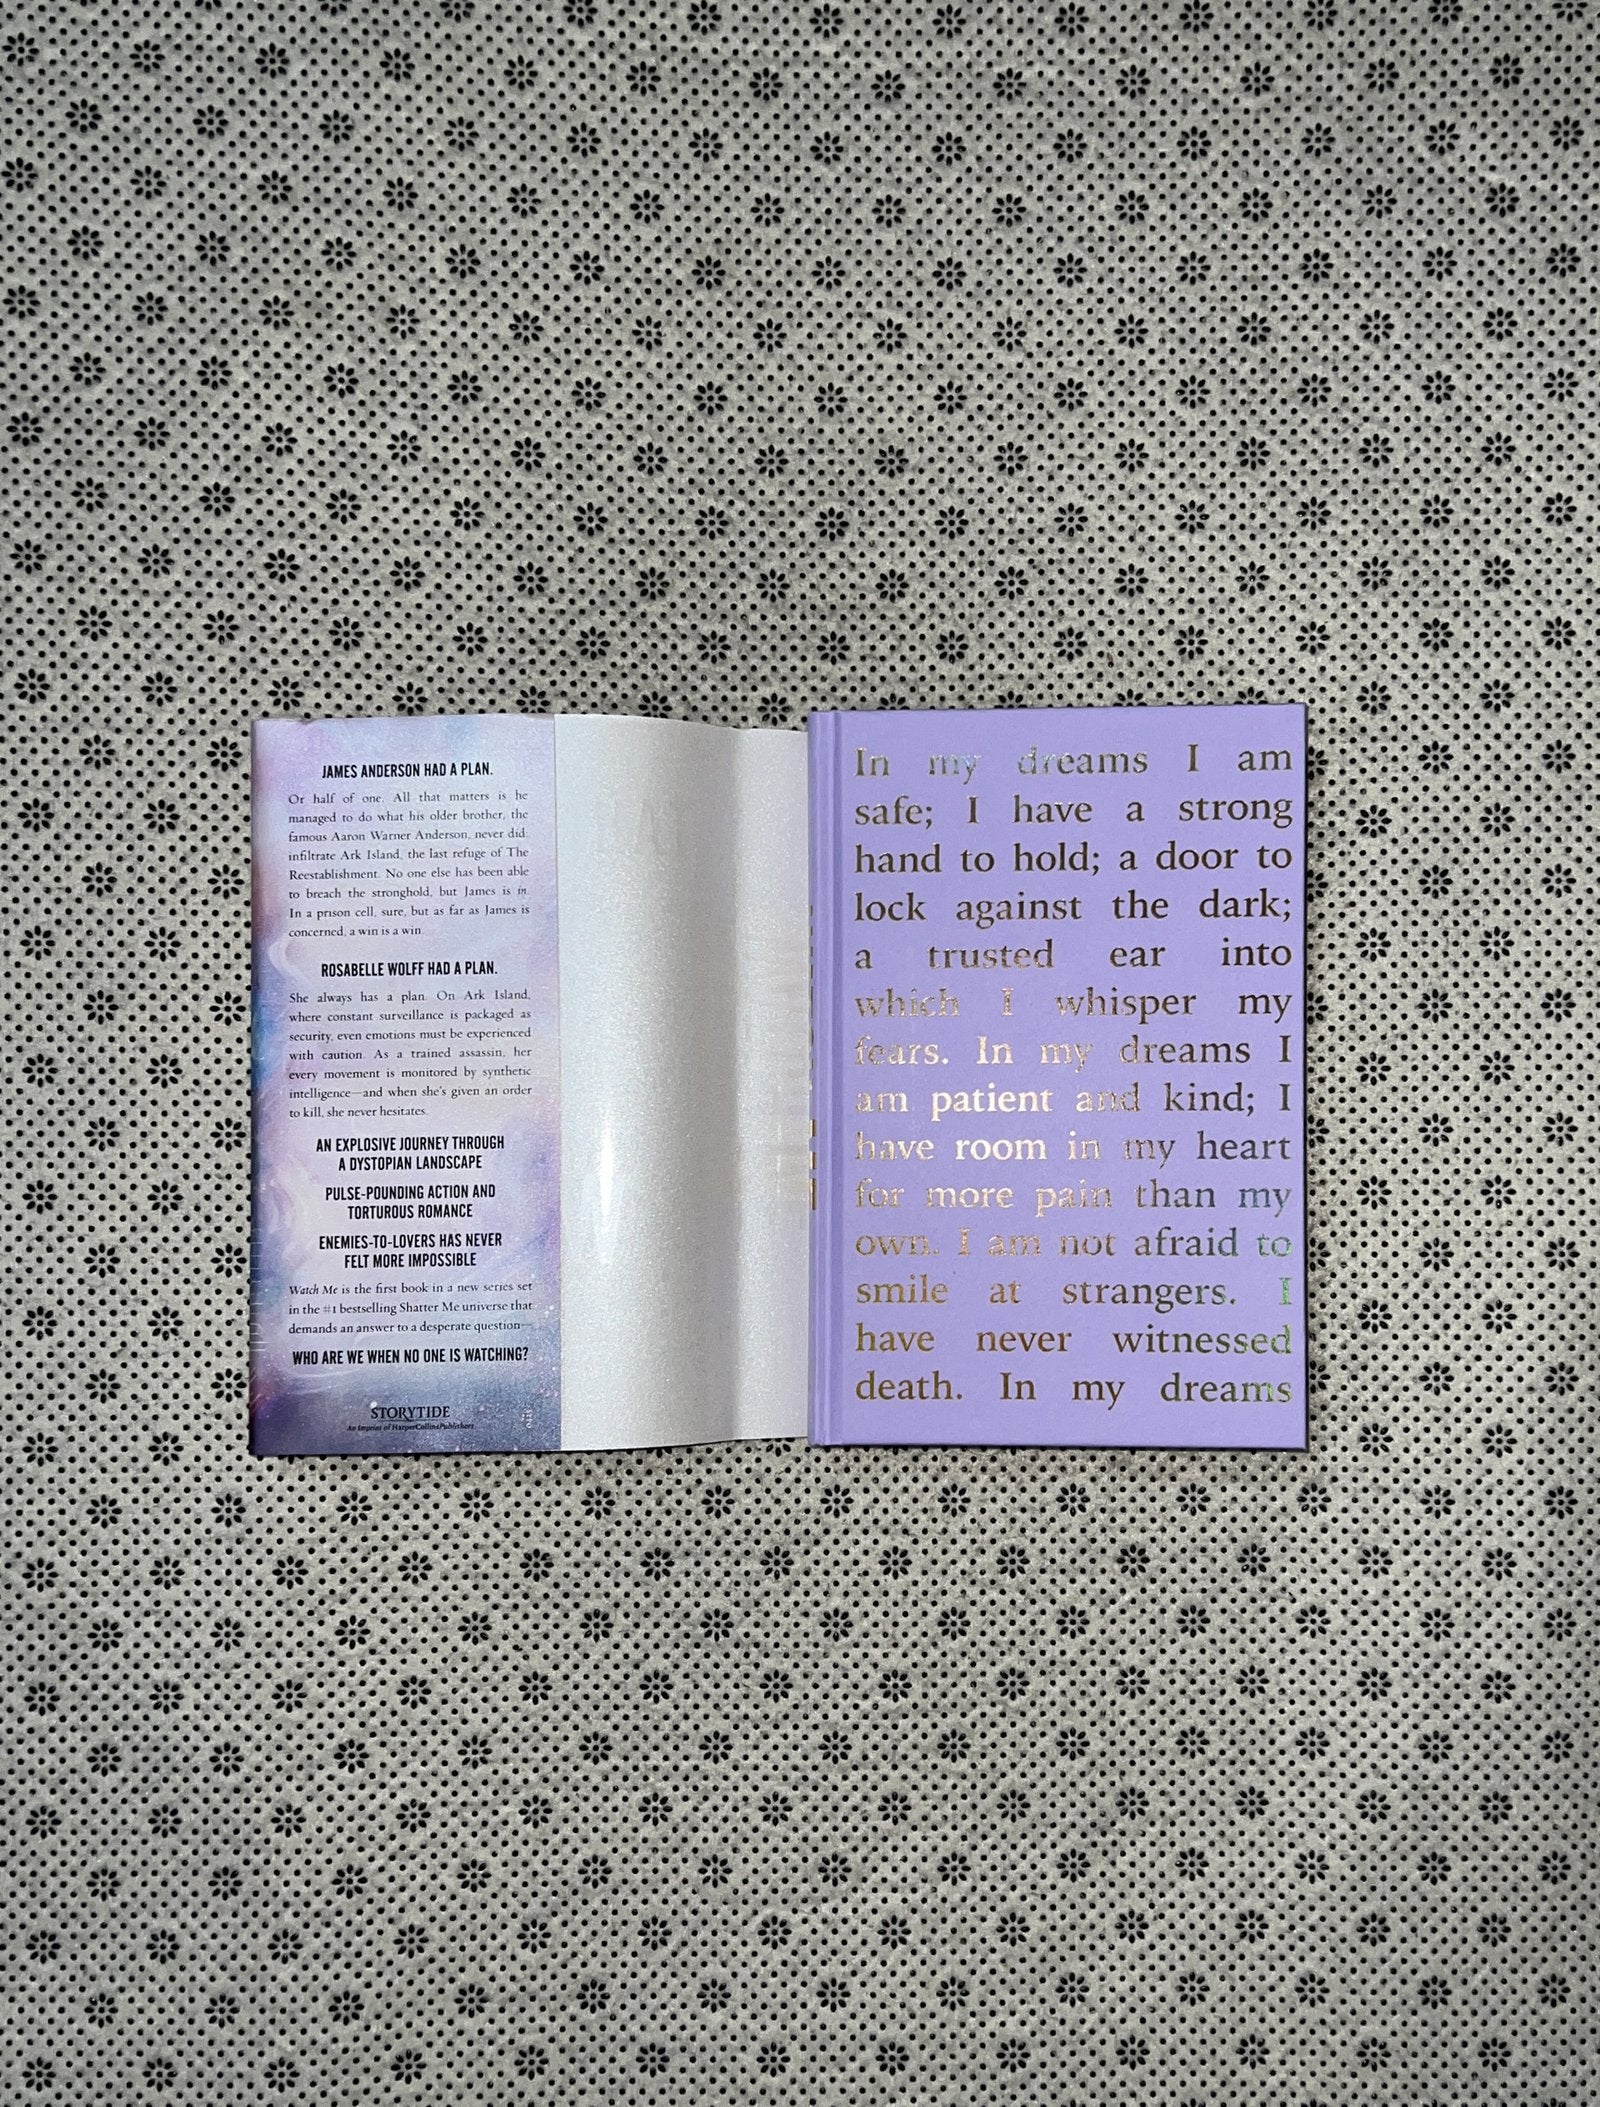 JAMES ANDERSON HAD A PLAN.
Or half of one. All that matters is he
managed to do what his older brother, the
famous Aaron Warner Anderson, never did:
infiltrate Ark Island, the last refuge of The
Reestablishment. No one else has been able
to breach the stronghold, but James is in.
In a prison cell, sure, but as far as James is
concerned, a win is a win.
ROSABELLE WOLFF HAD A PLAN.
She always has a plan. On Ark Island,
where constant surveillance is packaged as
security, even emotions must be experienced
with caution. As a trained assassin, her
every movement is monitored by synthetic
intelligence—and when she's given an order
to kill, she never hesitates.
AN EXPLOSIVE JOURNEY THROUGH
A DYSTOPIAN LANDSCAPE
PULSE-POUNDING ACTION AND
TORTUROUS ROMANCE
ENEMIES-TO-LOVERS HAS NEVER
FELT MORE IMPOSSIBLE
Watch Me is the first book in a new series set
in the #1 bestselling Shatter Me universe that
demands an answer to a desperate question—
WHO ARE WE WHEN NO ONE IS WATCHING?
STORYTIDE
An Imprint of HarperCollinsPublishers
In my dreams I am
safe; I have a strong
hand to hold; a door to
lock against the dark;
a trusted ear into
which I whisper my
fears. In my dreams I
am patient and kind; I
have room in my heart
for more pain than my
own. I am not afraid to
smile at strangers. I
have never witnessed
death. In my dreams